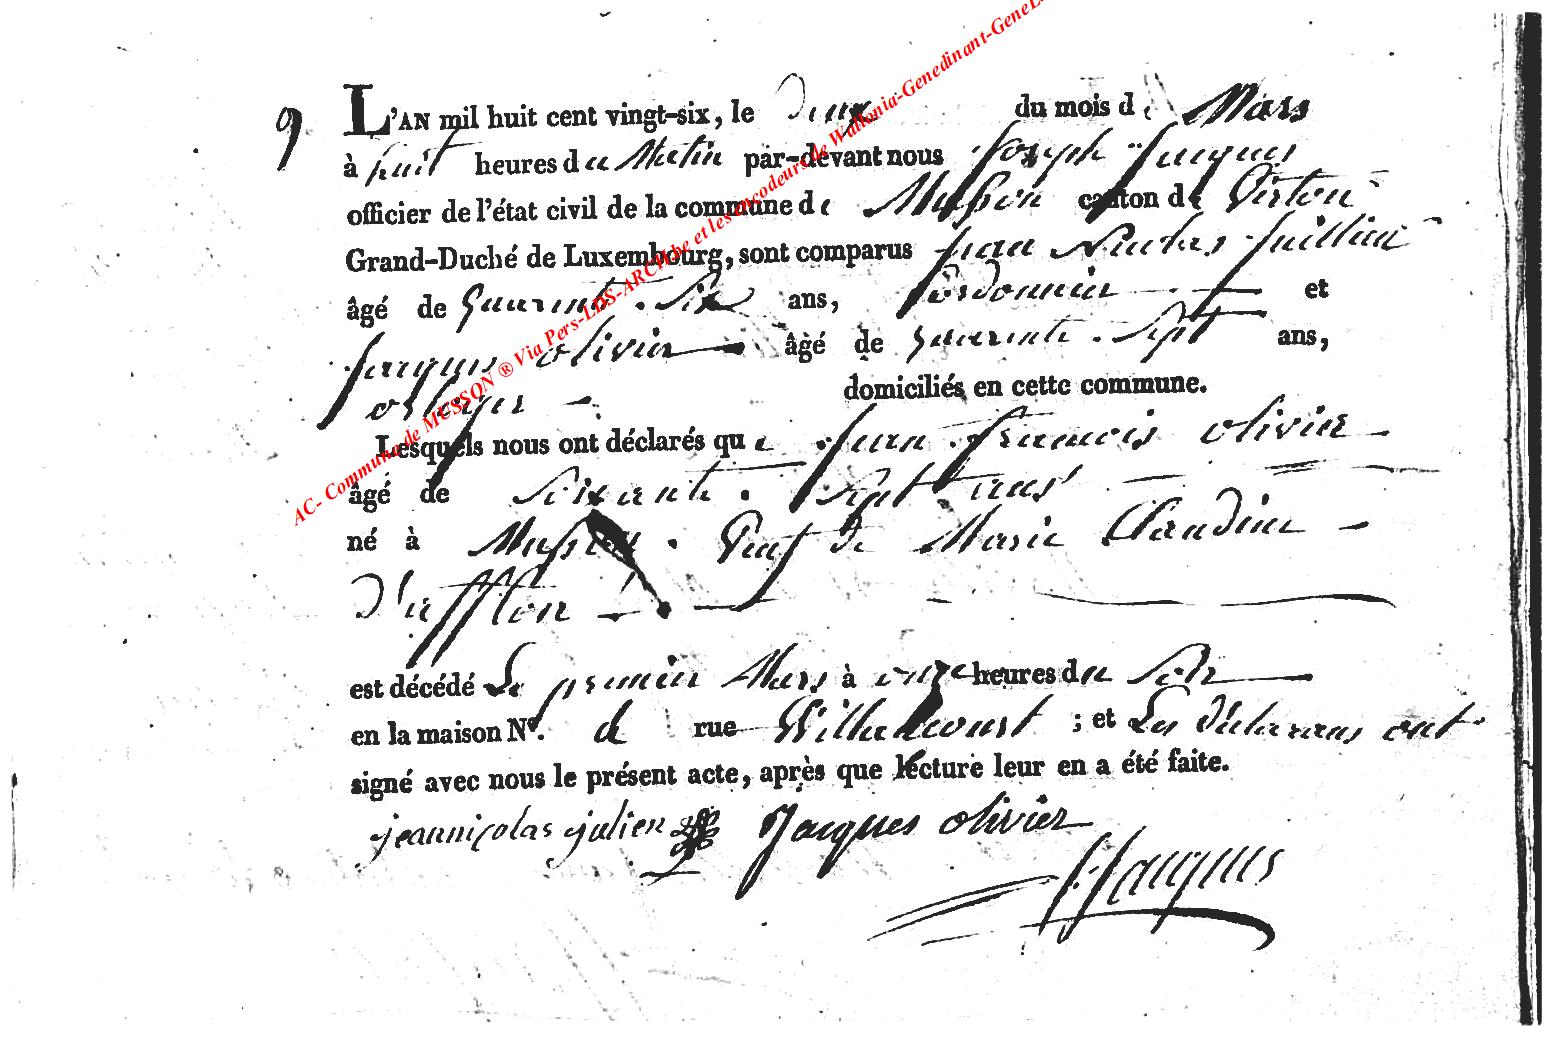 9
L'AN mil huit cent vingt-six, le deux du mois de Mars
à huit heures du Matin par-devant nous Joseph Jacques
officier de l'état civil de la commune de Musson canton de Virton
Grand-Duché de Luxembourg, sont comparus Jean Nicolas Juillien
âgé de Quarente Six ans, Cordonnier et
Jacques olivier âgé de quarente Sept ans,
domiciliés en cette commune.
Lesquels nous ont déclarés que Jean francois olivier
âgé de Soixante Sept ans
né à Musson Veuf de Marie Claudine
D'afflon
est décédé Le premier Mars à onze heures du Soir
en la maison N°. de rue Willancourt ; et Les Déclarans ont
signé avec nous le présent acte, après que lecture leur en a été faite.
jeannicolas julien Jacques olivier
JJacques
AC- Commune de MUSSON ® Via Pers-LDS-ARCH.be et les encodeurs de Wallonia-Genedinant-GeneL